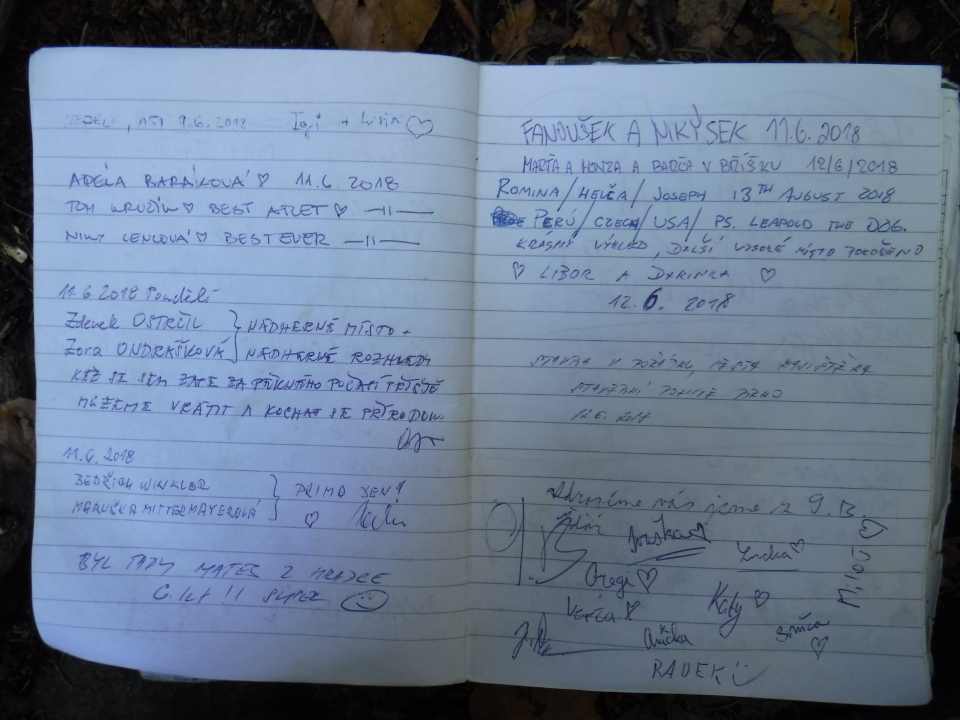 9.6.2018
ADÉLA BARÁKOVÁ ♡ 11.6.2018
TOM ♡ BEST ATLET ♡ —11—
NIKY LENCOVÁ ♡ BEST EVER —11—
11.6.2018 Pondělí
Zdenek OSTRČIL } NÁDHERNÉ MÍSTO +
Zora ONDRAŠKOVÁ } NÁDHERNÉ ROZHLEDY
KÉŽ SE SEM ZASE ZA PĚKNÉHO POČASÍ PŘÍŠTĚ
MŮŽEME VRÁTIT A KOCHAT SE PŘÍRODOU.
11.6.2018
BEDŘICH WINKLER } PRIMA DEN!
MARUŠKA MITTERMAYEROVÁ } ♡
BYL TADY MATES Z HRADCE
6. let !! SUPER ☺
FANOUŠEK A NIKÝSEK 11.6.2018
MARŤA A HONZA A BARČA V BŘÍŠKU 12/6/2018
ROMINA / HELČA / JOSEPH 13TH AUGUST 2018
PERÚ / CZECH / USA / PS. LEAPOLD THE DOG.
KRÁSNÝ VÝHLED, DALŠÍ VYSOKÉ MÍSTO POKOŘENO
♡ LIBOR A DARINKA ♡
12.6.2018
STAVBA V POŘÁDKU,
Zdravíme vás jsme z 9.B
Gregi ♡
Lucka ♡
Verča ♡
Katy ♡
Anička
Miloš ♡
RADEK